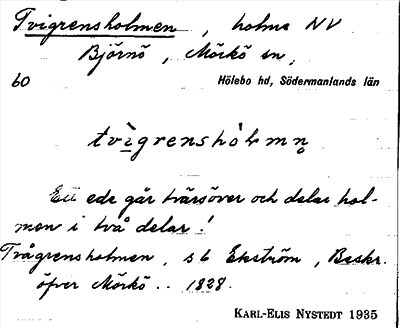 Tvigrensholmen, holme NV
Björnö, Mörkö sn,
60 Hölebo hd, Södermanlands län
tvìgrenshòlmn̥
Ett ede går tvärsöver och delar hol-
men i två delar!
Tvågrensholmen, s 6 Ekström, Beskr.
öfver Mörkö .. 1828.
KARL-ELIS NYSTEDT 1935